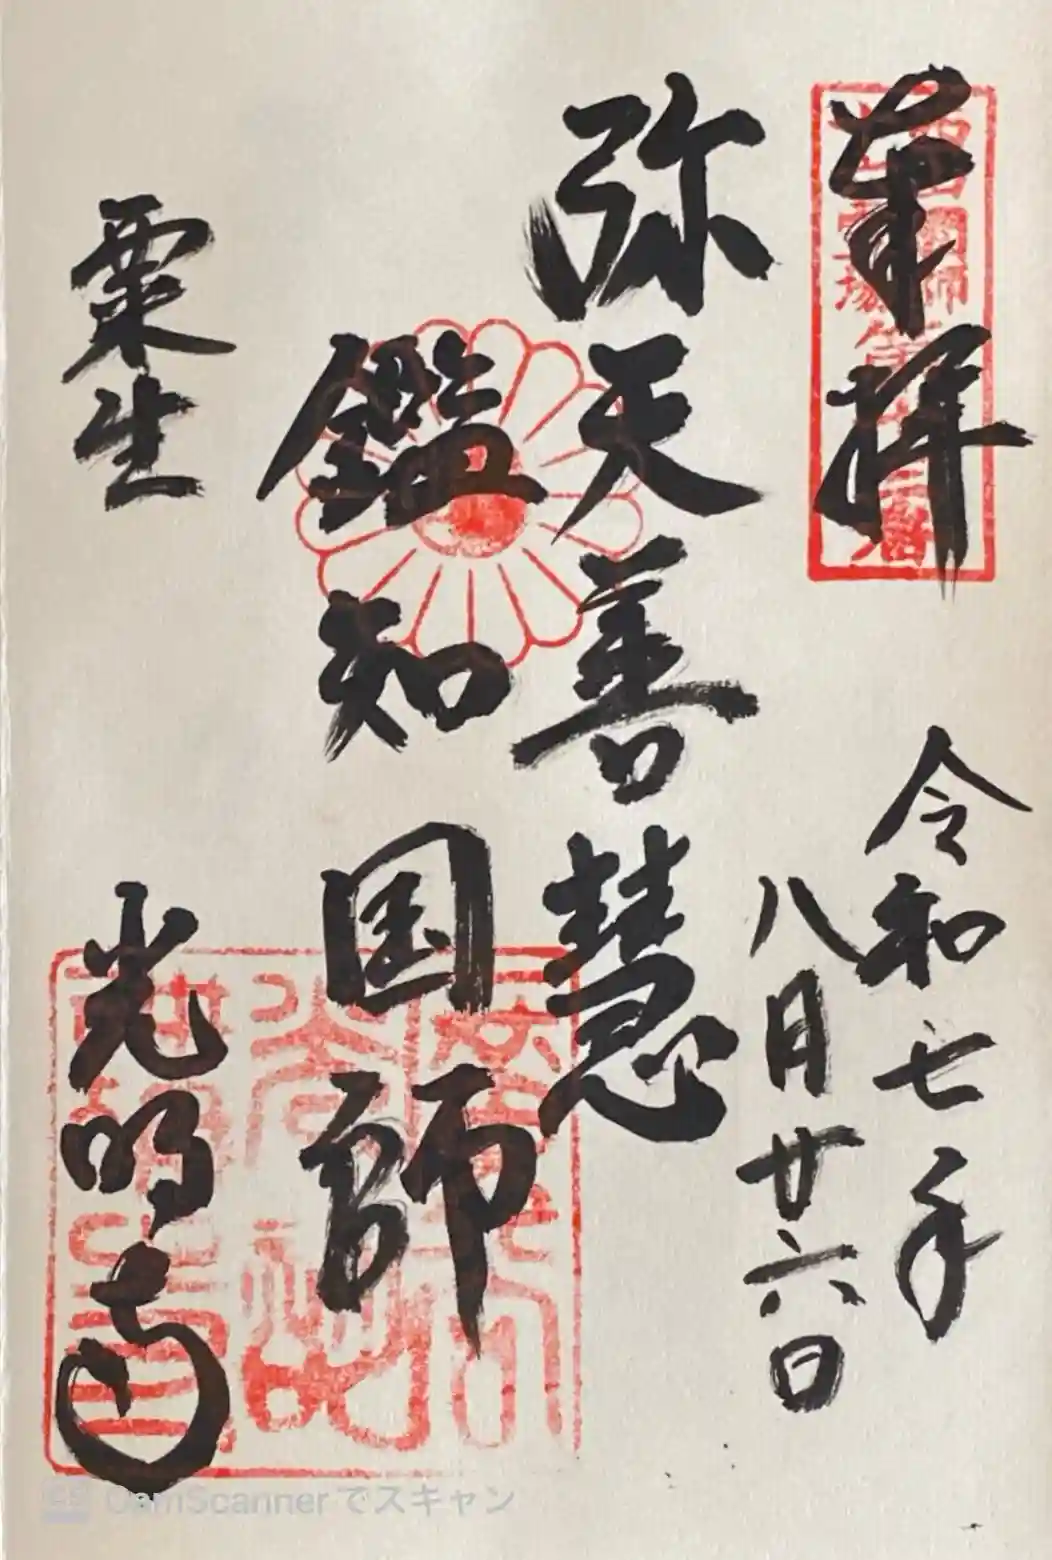 奉拝
令和七年
八月廿六日
弥天善慧
鑑知国師
粟生
光明寺
CamScanner でスキャン